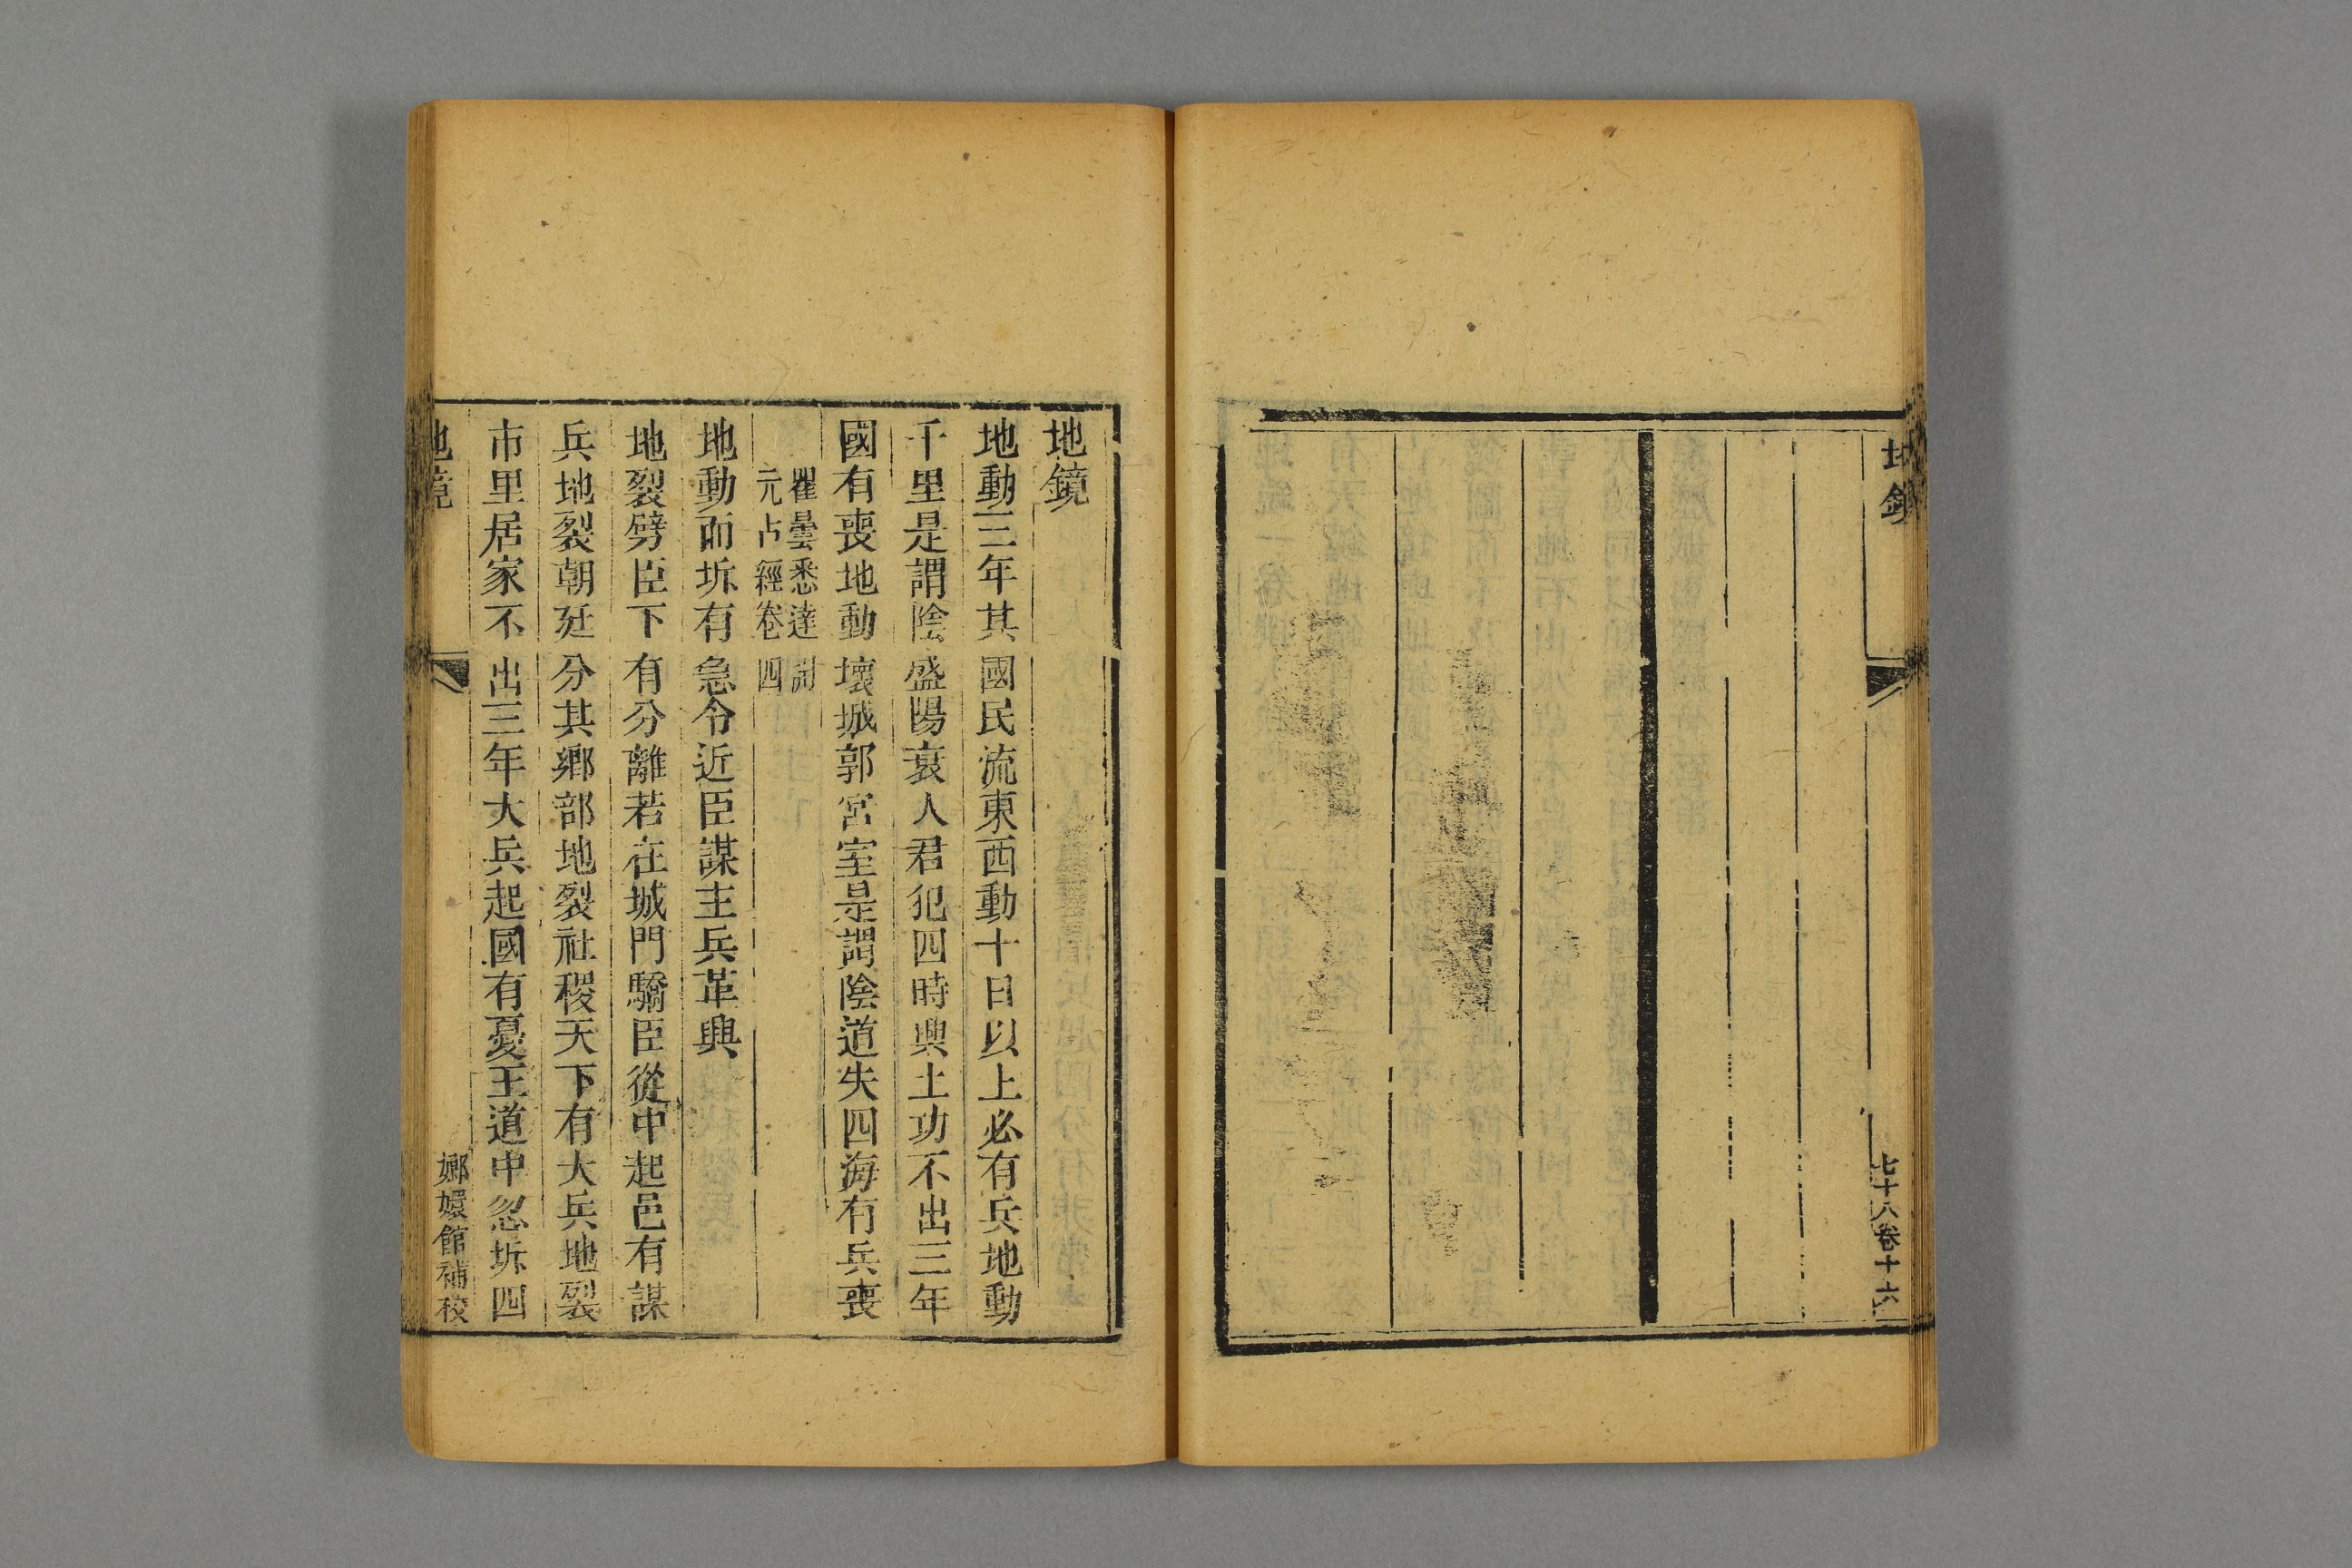 地鏡
七十八卷十六
地鏡
地動三年其國民流東西動十日以上必有兵地動
千里是謂陰盛陽衰人君犯四時興土功不出三年
國有喪地動壞城郭宮室是謂陰道失四海有兵喪
瞿曇悉達開
元占經卷四
地動而坼有急令近臣謀主兵革興
地裂劈臣下有分離若在城門驕臣從中起邑有謀
兵地裂朝廷分其鄉部地裂社稷天下有大兵地裂
市里居家不出三年大兵起國有憂王道中忽坼四
地鏡
嫏嬛館補校